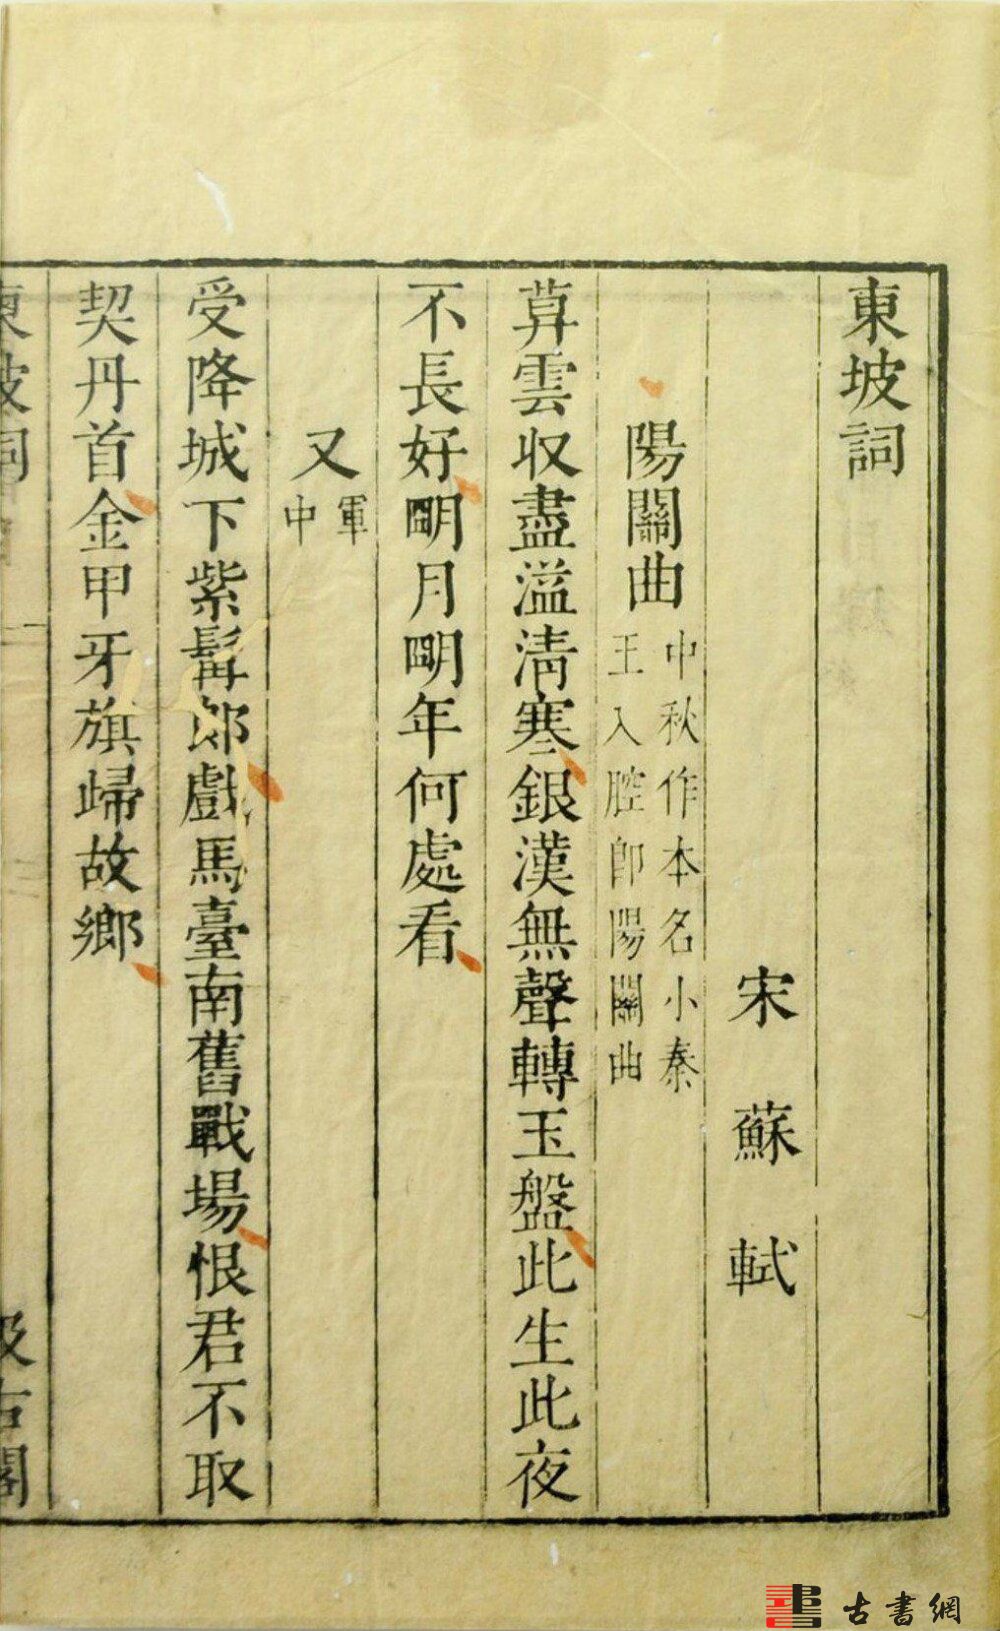 東坡詞
宋蘇軾
陽關曲
中秋作本名小秦
王入腔即陽關曲
莫雲收盡溢清寒銀漢無聲轉玉盤此生此夜
不長好朙月朙年何處看
又
軍
中
受降城下紫髯郎戲馬臺南舊戰場恨君不取
契丹首金甲牙旗歸故鄉
東坡詞
汲古閣
古書網